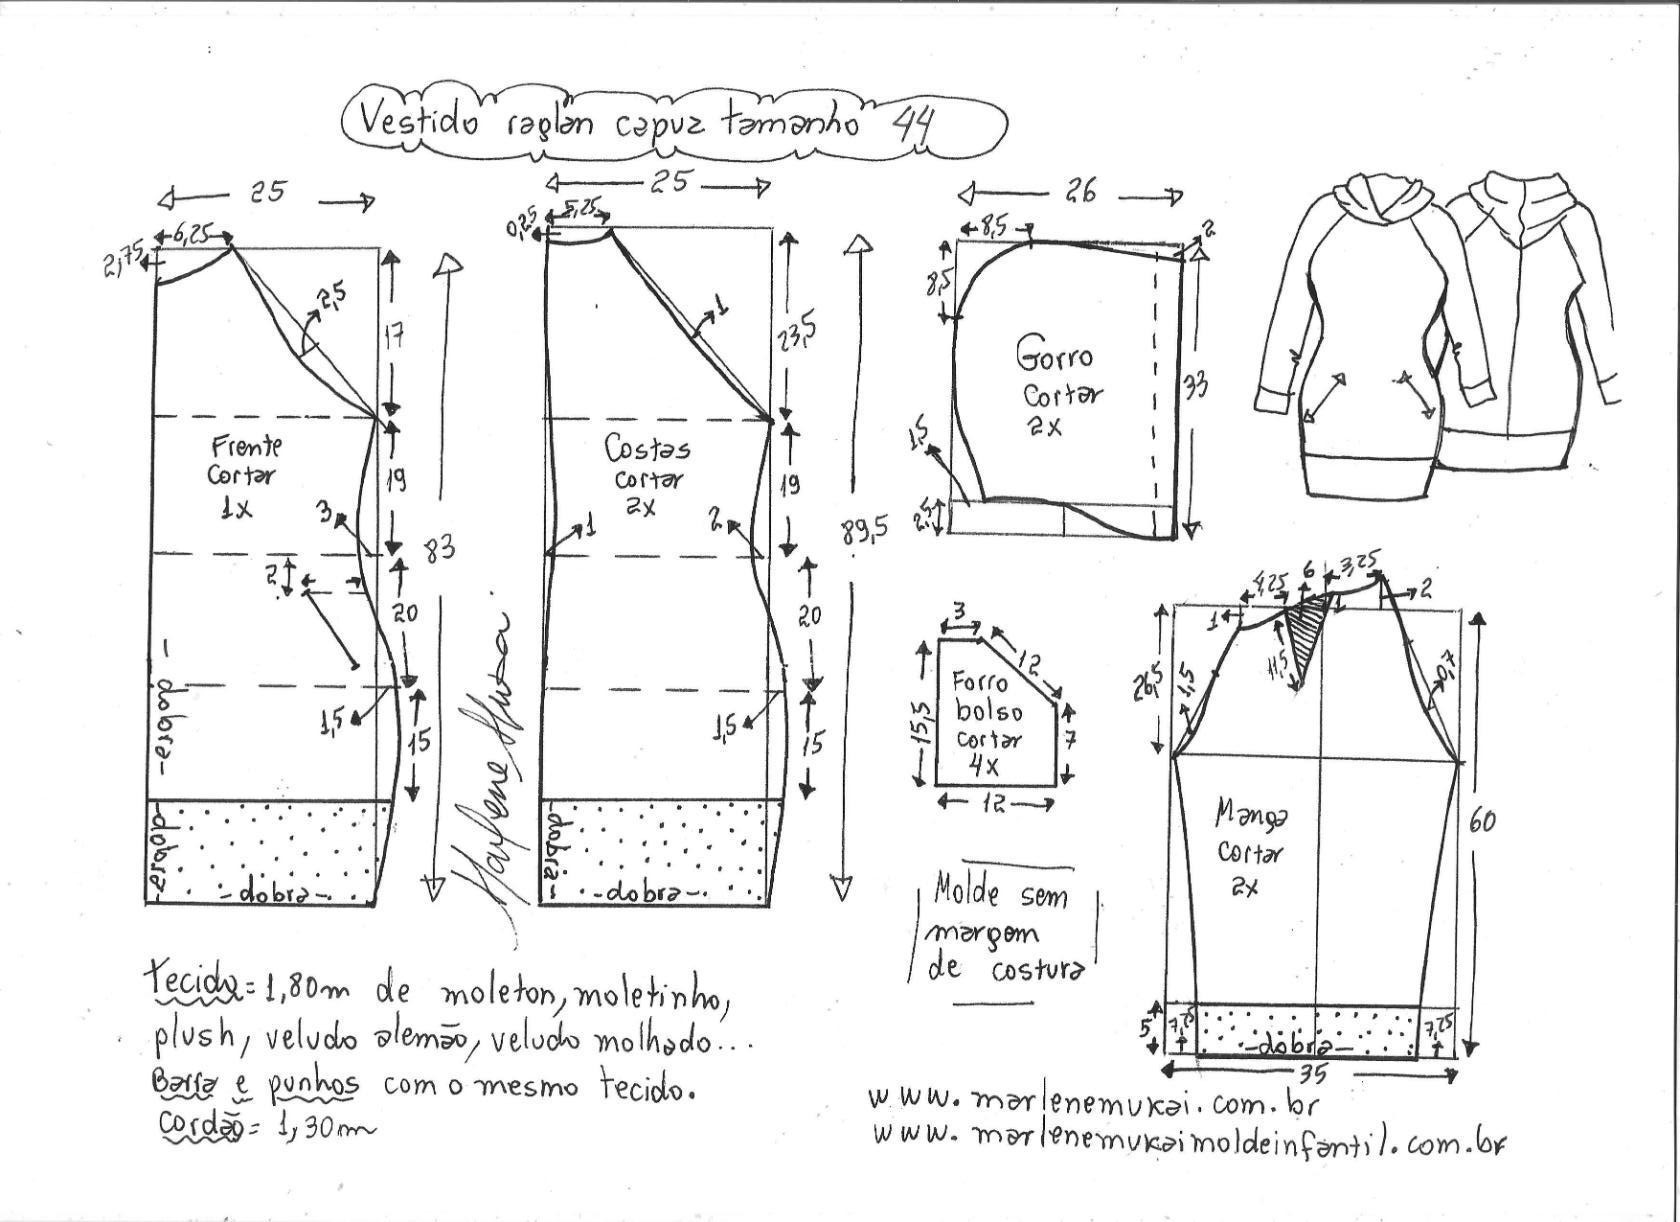 Vestido raglan capuz tamanho 44
25
6,25
2,75
2,5
17
Frente
Cortar
1x
19
3
83
2
20
1,5
15
-dobra-
-dobra-
-dobra-
25
0,25
5,25
1
23,5
Costas
cortar
2x
19
1
2
89,5
20
1,5
15
-dobra-
-dobra-
26
8,5
2
8,5
Gorro
Cortar
2x
33
1,5
2,5
3
12
Forro
bolso
cortar
4x
15,5
7
12
4,25
6
3,25
1
1
2
26,5
1,5
11,5
0,7
Manga
cortar
2x
60
5
7,25
7,25
-dobra-
35
Molde sem
margem
de costura
Tecido=1,80m de moleton, moletinho,
plush, veludo alemão, veludo molhado...
Barra e punhos com o mesmo tecido.
Cordão= 1,30m
www.marlenemukai.com.br
www.marlenemukaimoldeinfantil.com.br